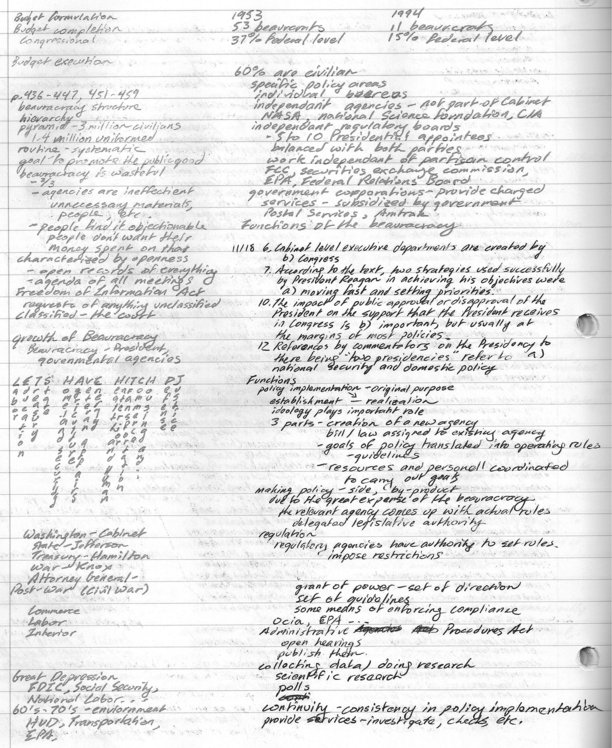 Budget formulation
Budget completion
Congressional
Budget execution
p.436-447, 451-459
beauracracy structure
hierarchy
pyramid - 3 million civilians
1.4 million uniformed
routine - systematic
goal to promote the public good
beauracracy is wasteful
- 2/3
- agencies are ineffectient
unneccessary materials,
people, etc.
- people find it objectionable
people don't want their
money spent on that
characterized by openness
- open records of everything
- agenda of all meetings
Freedom of Information Act
requests of anything unclassified
classified - the court
Growth of Beauracracy
Beauracracy - President,
governmental agencies
LETS HAVE HITCH DJ
Washington - Cabinet
State - Jefferson
Treasury - Hamilton
War - Knox
Attorney General -
Post-War (Civil War)
Commerce
Labor
Interior
Great Depression
FDIC, Social Security,
National Labor...
60's-70's - enviornment
HUD, Transportation,
EPA,
1953 1994
53 beaurcrats 11 beaucrats
37% Federal level 15% Federal level
60% are civilian
specific policy areas
individual
independant agencies - not part of Cabinet
NASA, national Science foundation, CIA
independant regulatory boards
5 to 10 Presidential appointees
balanced with both parties
work independant of partisan control
FCC, securities exchange commission,
EPA, Federal Relations Board
government corporations - provide charged
services - subsidized by government
Postal Services, Amtrak
Functions of the beauracracy
11/18 6. Cabinet level executive departments are created by
b) Congress
7. According to the text, two strategies used successfully
by President Reagan in achieving his objectives were
a) moving fast and setting priorities.
10. The impact of public approval or disapproval of the
President on the support that the President receives
in Congress is b) important, but usually at
the margins of most policies.
12. References by commentators on the Presidency to
there being "two presidencies" refer to a)
national security and domestic policy
Functions
policy implementation - original purpose
establishment → realization
ideology plays important role
3 parts - creation of a new agency
bill/law assigned to existing agency
- goals of policy translated into operating rules
- guidelines
- resources and personell coordinated
to carry out goals
making policy - side, (by-product
due to the great expense of the beauracracy
the relevant agency comes up with actual rules
delegated legislative authority
regulation
regulatory agencies have authority to set rules.
impose restrictions
grant of power - set of direction
set of guidelines
some means of enforcing compliance
Ocia, EPA ...
Administrative Procedures Act
open hearings
publish them
collecting data/doing research
scientific research
polls
continuity - consistency in policy implementation
provide services - investigate, checks, etc.